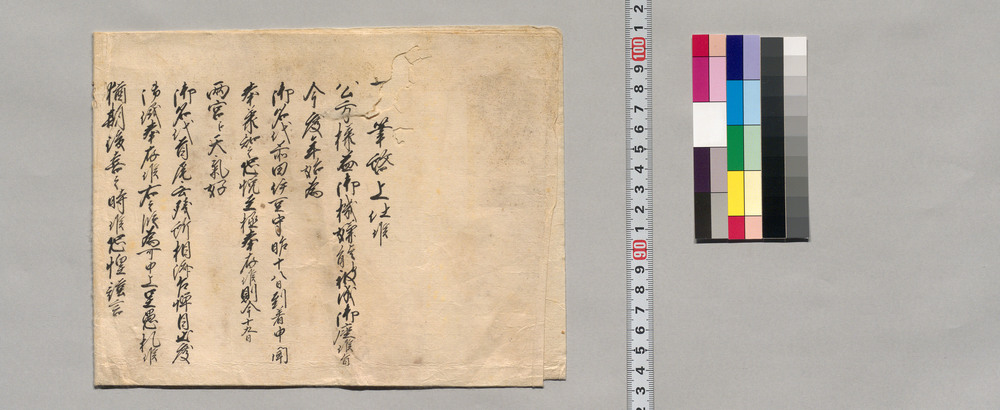 一筆啓上仕候
公方様益御機嫌能被成御座候旨
今度年始為
御名代前田伊豆守昨十八日到着申聞
奉承知恐悦至極奉存候則今十九日
両宮江天気好
御名代首尾 残所相済 目出度
御儀奉存候右 為可申上呈愚札候
猶期後喜之時候恐惶謹言
100
90